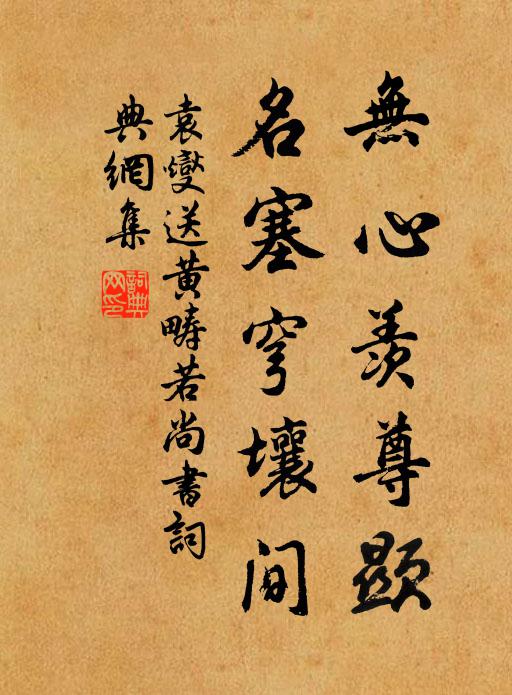 無心羨尊顯
名塞穹壤間
袁燮送黃疇若尚書詞
典網集
詞典網印